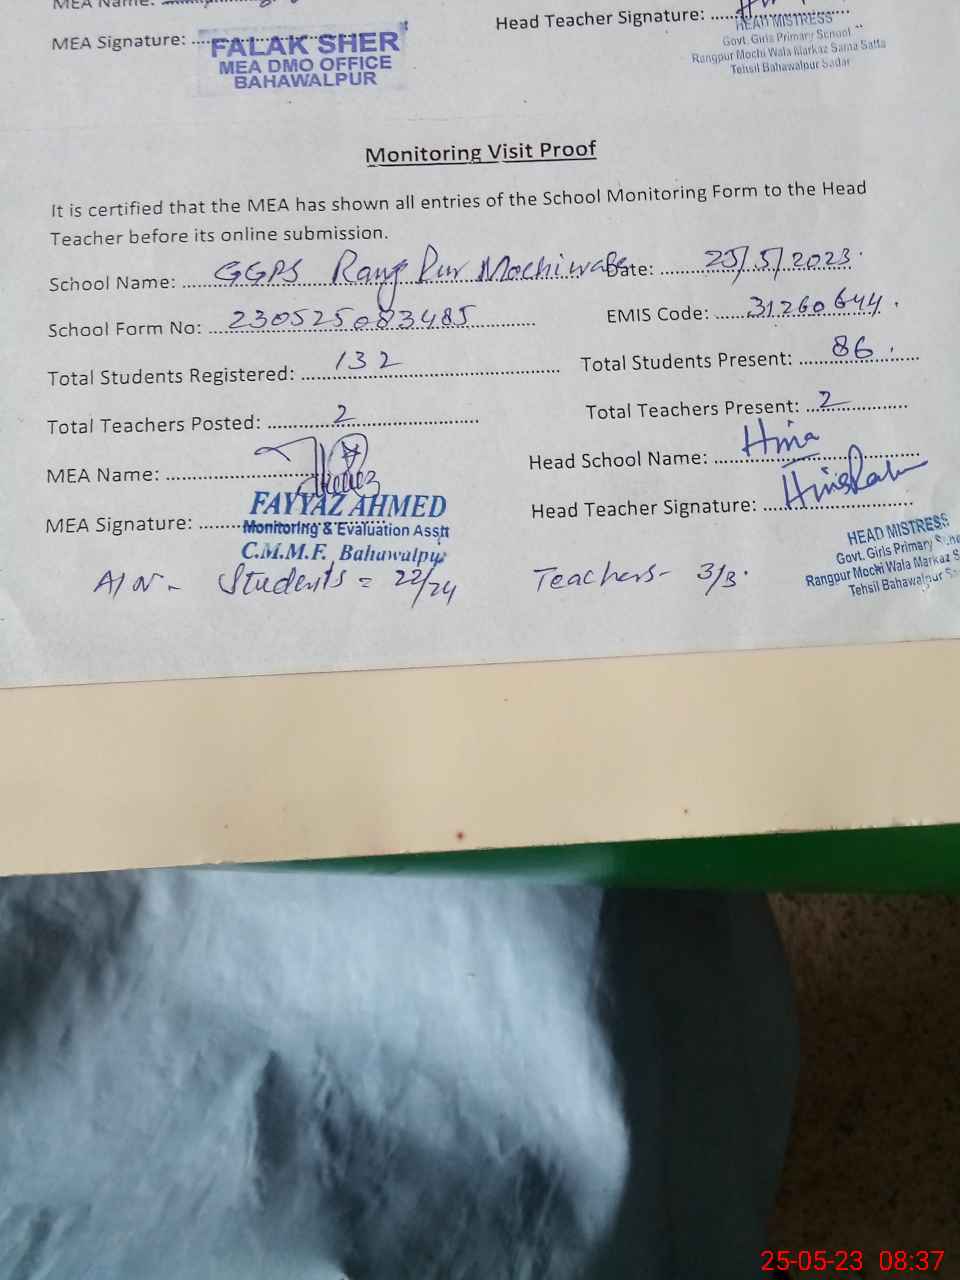 MEA Name:
Head Teacher Signature:
MEA Signature:
FALAK SHER
MEA DMO OFFICE
BAHAWALPUR
HEAD MISTRESS
Govt. Girls Primary School
Rangpur Mochi Wala Markaz Sama Satta
Tehsil Bahawalpur Sadar
Monitoring Visit Proof
It is certified that the MEA has shown all entries of the School Monitoring Form to the Head
Teacher before its online submission.
School Name: GGPS Rang Pur Mochiwala Date: 25/5/2023
School Form No: 230525083485 EMIS Code: 31260644
Total Students Registered: 132 Total Students Present: 86
Total Teachers Posted: 2 Total Teachers Present: 2
MEA Name: Head School Name: Hina
MEA Signature: Head Teacher Signature:
FAYYAZ AHMED
Monitoring & Evaluation Asstt
C.M.M.F. Bahawalpur
HEAD MISTRESS
Govt. Girls Primary
Rangpur Mochi Wala Markaz S
Tehsil Bahawalpur
A/N - Students = 22/24 Teachers - 3/3.
25-05-23 08:37